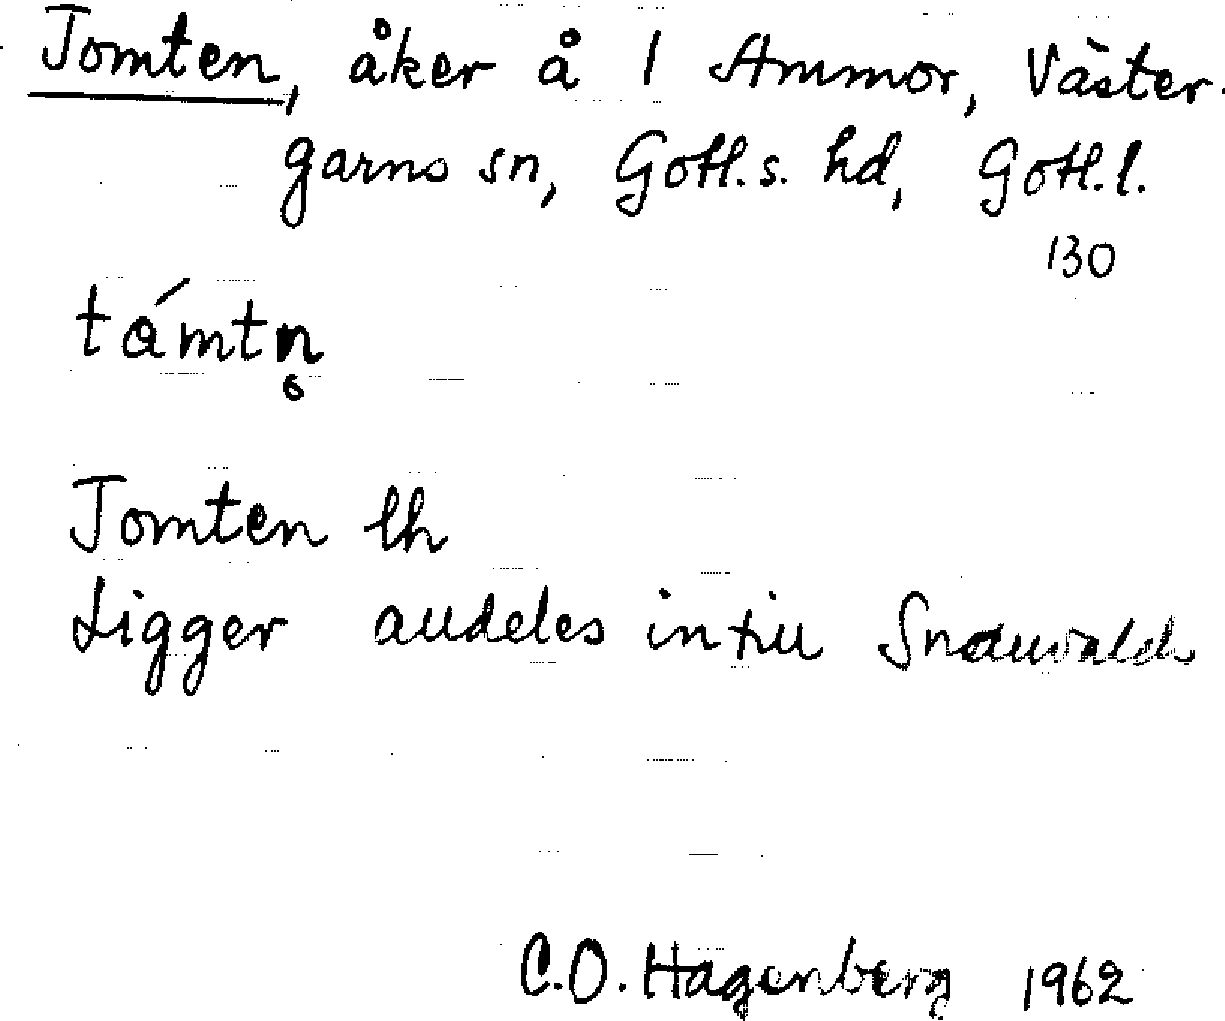 Tomten, åker å 1 Ammor, Väster-
garns sn, Gotl.s. hd, Gotl.l.
130
támtn̥
Tomten lh
Ligger alldeles intill Snauvalds
C.O. Hagenberg 1962